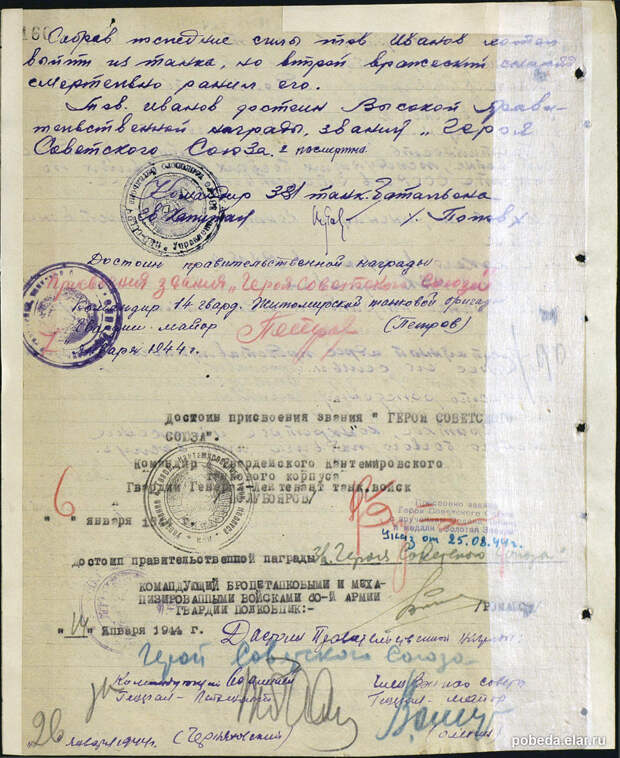 160
Собрав последние силы тов Иванов хотел
выйти из танка, но второй вражеский снаряд
смертельно ранил его.
Тов. Иванов достоин Высокой Прави-
тельственной награды, звания „Героя
Советского Союза." посмертно
Командир 381 танк. батальона
Гв. Капитан / Попов /
Достоин правительственной награды
Присвоения звания „Героя Советского Союза"
Командир 14 гвард. Житомирской танковой бригады
Гвардии майор (Петров)
января 1944 г.
ДОСТОИН ПРИСВОЕНИЯ ЗВАНИЯ " ГЕРОЙ СОВЕТСКОГО
СОЮЗА".
Командир Гвардейского Кантемировского
танкового корпуса
Гвардии Генерал-Лейтенант танк.войск
/ПОЛУБОЯРОВ/
"6" января 194
Присвоено звание
Героя Советского Союза
вручением
медали "Золотая Звезда"
Указ от 25.08.44г.
ДОСТОИН ПРАВИТЕЛЬСТВЕННОЙ НАГРАДЫ Зв. „Героя Советского Союза"
КОМАНДУЮЩИЙ БРОНЕТАНКОВЫМИ И МЕХА-
НИЗИРОВАННЫМИ ВОЙСКАМИ 60-Й АРМИИ
ГВАРДИИ ПОЛКОВНИК:-
"14" ЯНВАРЯ 1944 г. Достоин Правительственной награды:
Герой Советского Союза
Командующий 60 армией Член Военного совета
Генерал-Лейтенант Генерал-майор
"26" января 1944г. (Черняховский)
pobeda.elar.ru